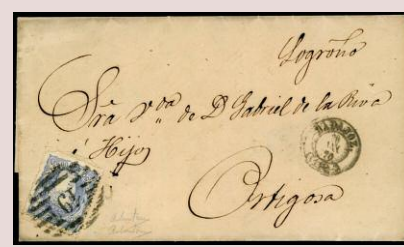 Logroño
Sra. Vda. de D. Gabriel de la Riva
é Hijo
Ortigosa
BADAJOZ